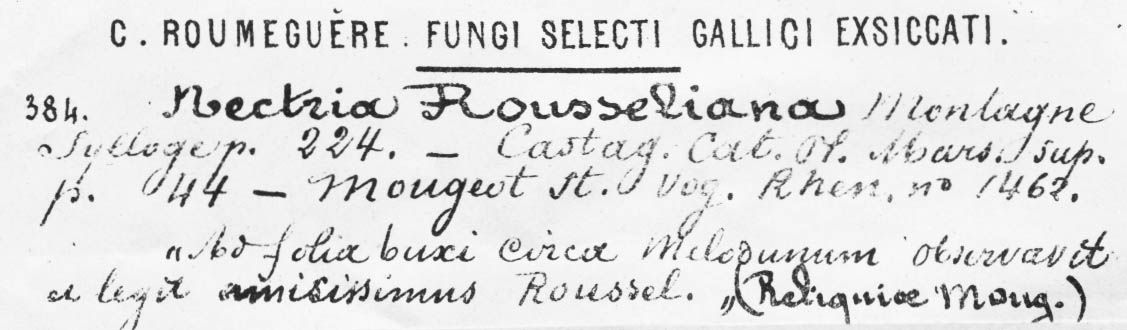 C. ROUMEGUÈRE. FUNGI SELECTI GALLICI EXSICCATI.
384. Nectria Rousseliana Montagne
Sylloge p. 224. — Castag. Cat. Pl. Mars. sup.
p. 44 — Mougeot St. Vog. Rhen. no 1462.
„Ad folia buxi circa Melodunum observavit
et legit amisissimus Roussel. „(Reliquiæ Moug.)